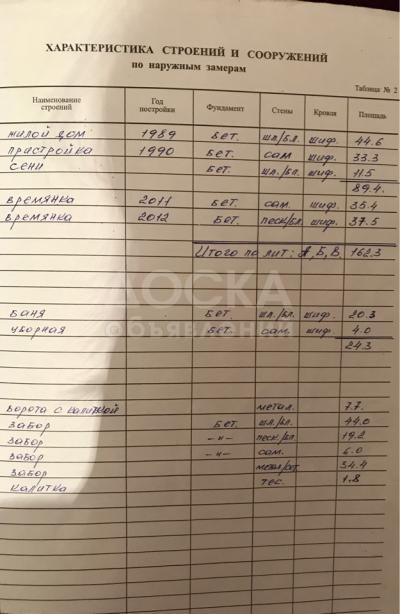 ХАРАКТЕРИСТИКА СТРОЕНИЙ И СООРУЖЕНИЙ
по наружным замерам
Таблица № 2
Наименование строений Год постройки Фундамент Стены Кровля Площадь
жилой дом 1989 Бет. шл/бл. шиф. 44.6
пристройка 1990 Бет. сам шиф. 33.3
сени Бет. шл./бл. шиф. 11.5
89.4.
времянка 2011 Бет. сам. шиф. 35.4
времянка 2012 Бет. песк/бл. шиф. 37.5
Итого по лит: А, Б, В. 162.3
ДОСКА
объявлений
Баня Бет. шл./бл. шиф. 20.3
уборная Бет. сам. шиф. 4.0
24.3
ворота с калиткой метал. 7.7.
забор Бет. шл/бл. 44.0
забор -"- песк/бл. 19.2
забор -"- сам. 6.0
забор 34.4
калитка тес. 1.8